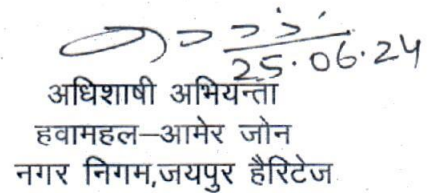 25.06.24
अधिशाषी अभियन्ता
हवामहल–आमेर जोन
नगर निगम,जयपुर हैरिटेज